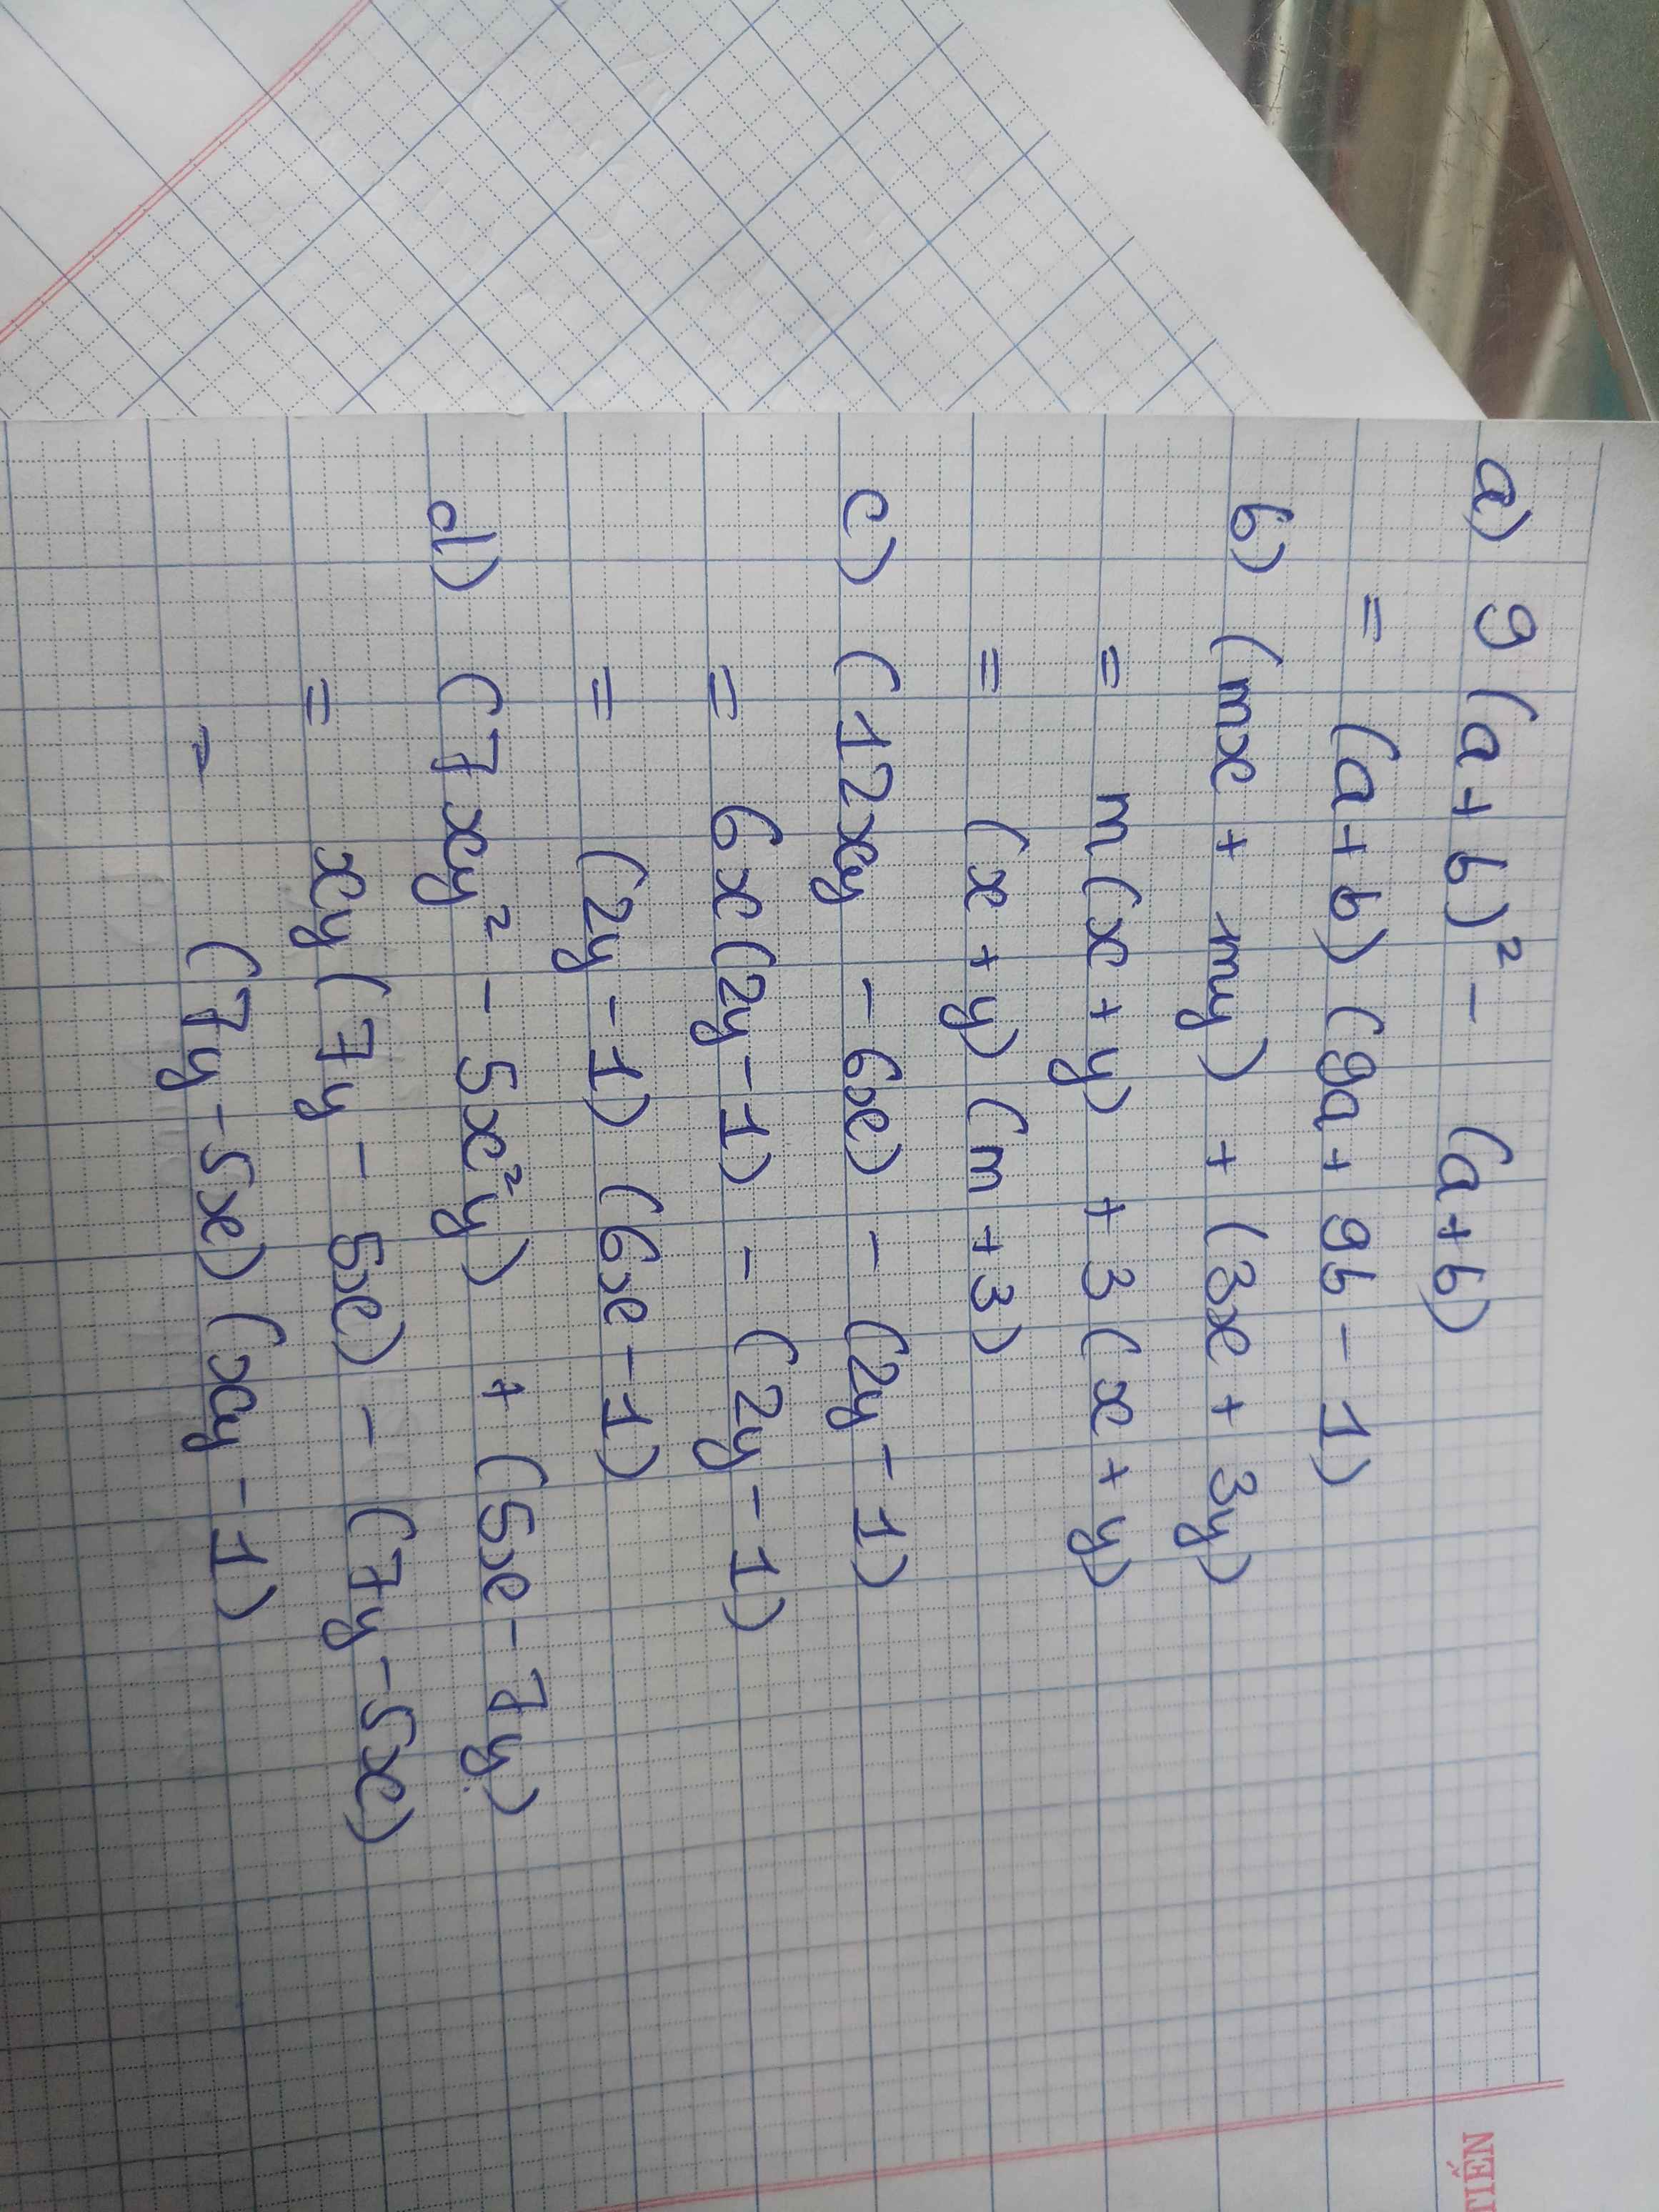 a) 9(a+b)² - (a+b)
= (a+b)(9a+9b-1)
b) (mx + my) + (3x + 3y)
= m(x+y) + 3(x+y)
= (x+y)(m+3)
c) (12xy - 6x) - (2y-1)
= 6x(2y-1) - (2y-1)
= (2y-1)(6x-1)
d) (7xy² - 5x²y) + (5x-7y)
= xy(7y - 5x) - (7y-5x)
= (7y-5x)(xy-1)
TIẾN